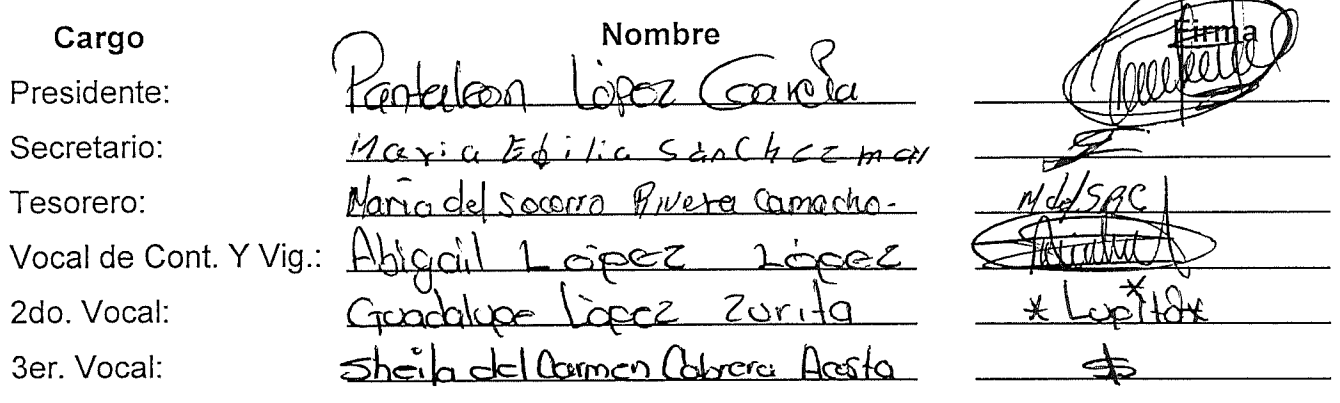 Cargo Nombre Firma
Presidente: Pantaleon López García
Secretario: Maria Edilia Sánchez
Tesorero: María del Socorro Rivera Camacho. M del SRC
Vocal de Cont. Y Vig.: Abigail López López
2do. Vocal: Guadalupe López Zurita * Lupita *
3er. Vocal: Sheila del Carmen Cabrera Acosta